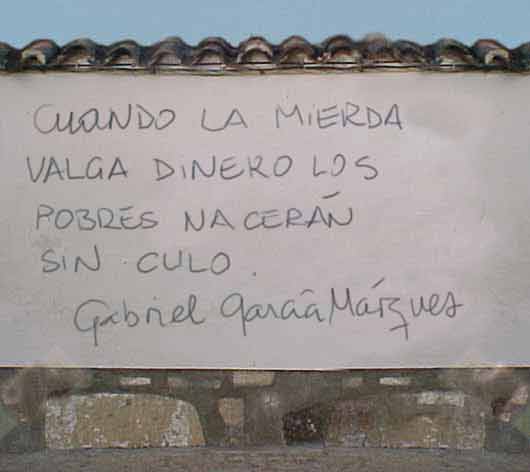 CUANDO LA MIERDA
VALGA DINERO LOS
POBRES NACERÁN
SIN CULO.
Gabriel García Márquez